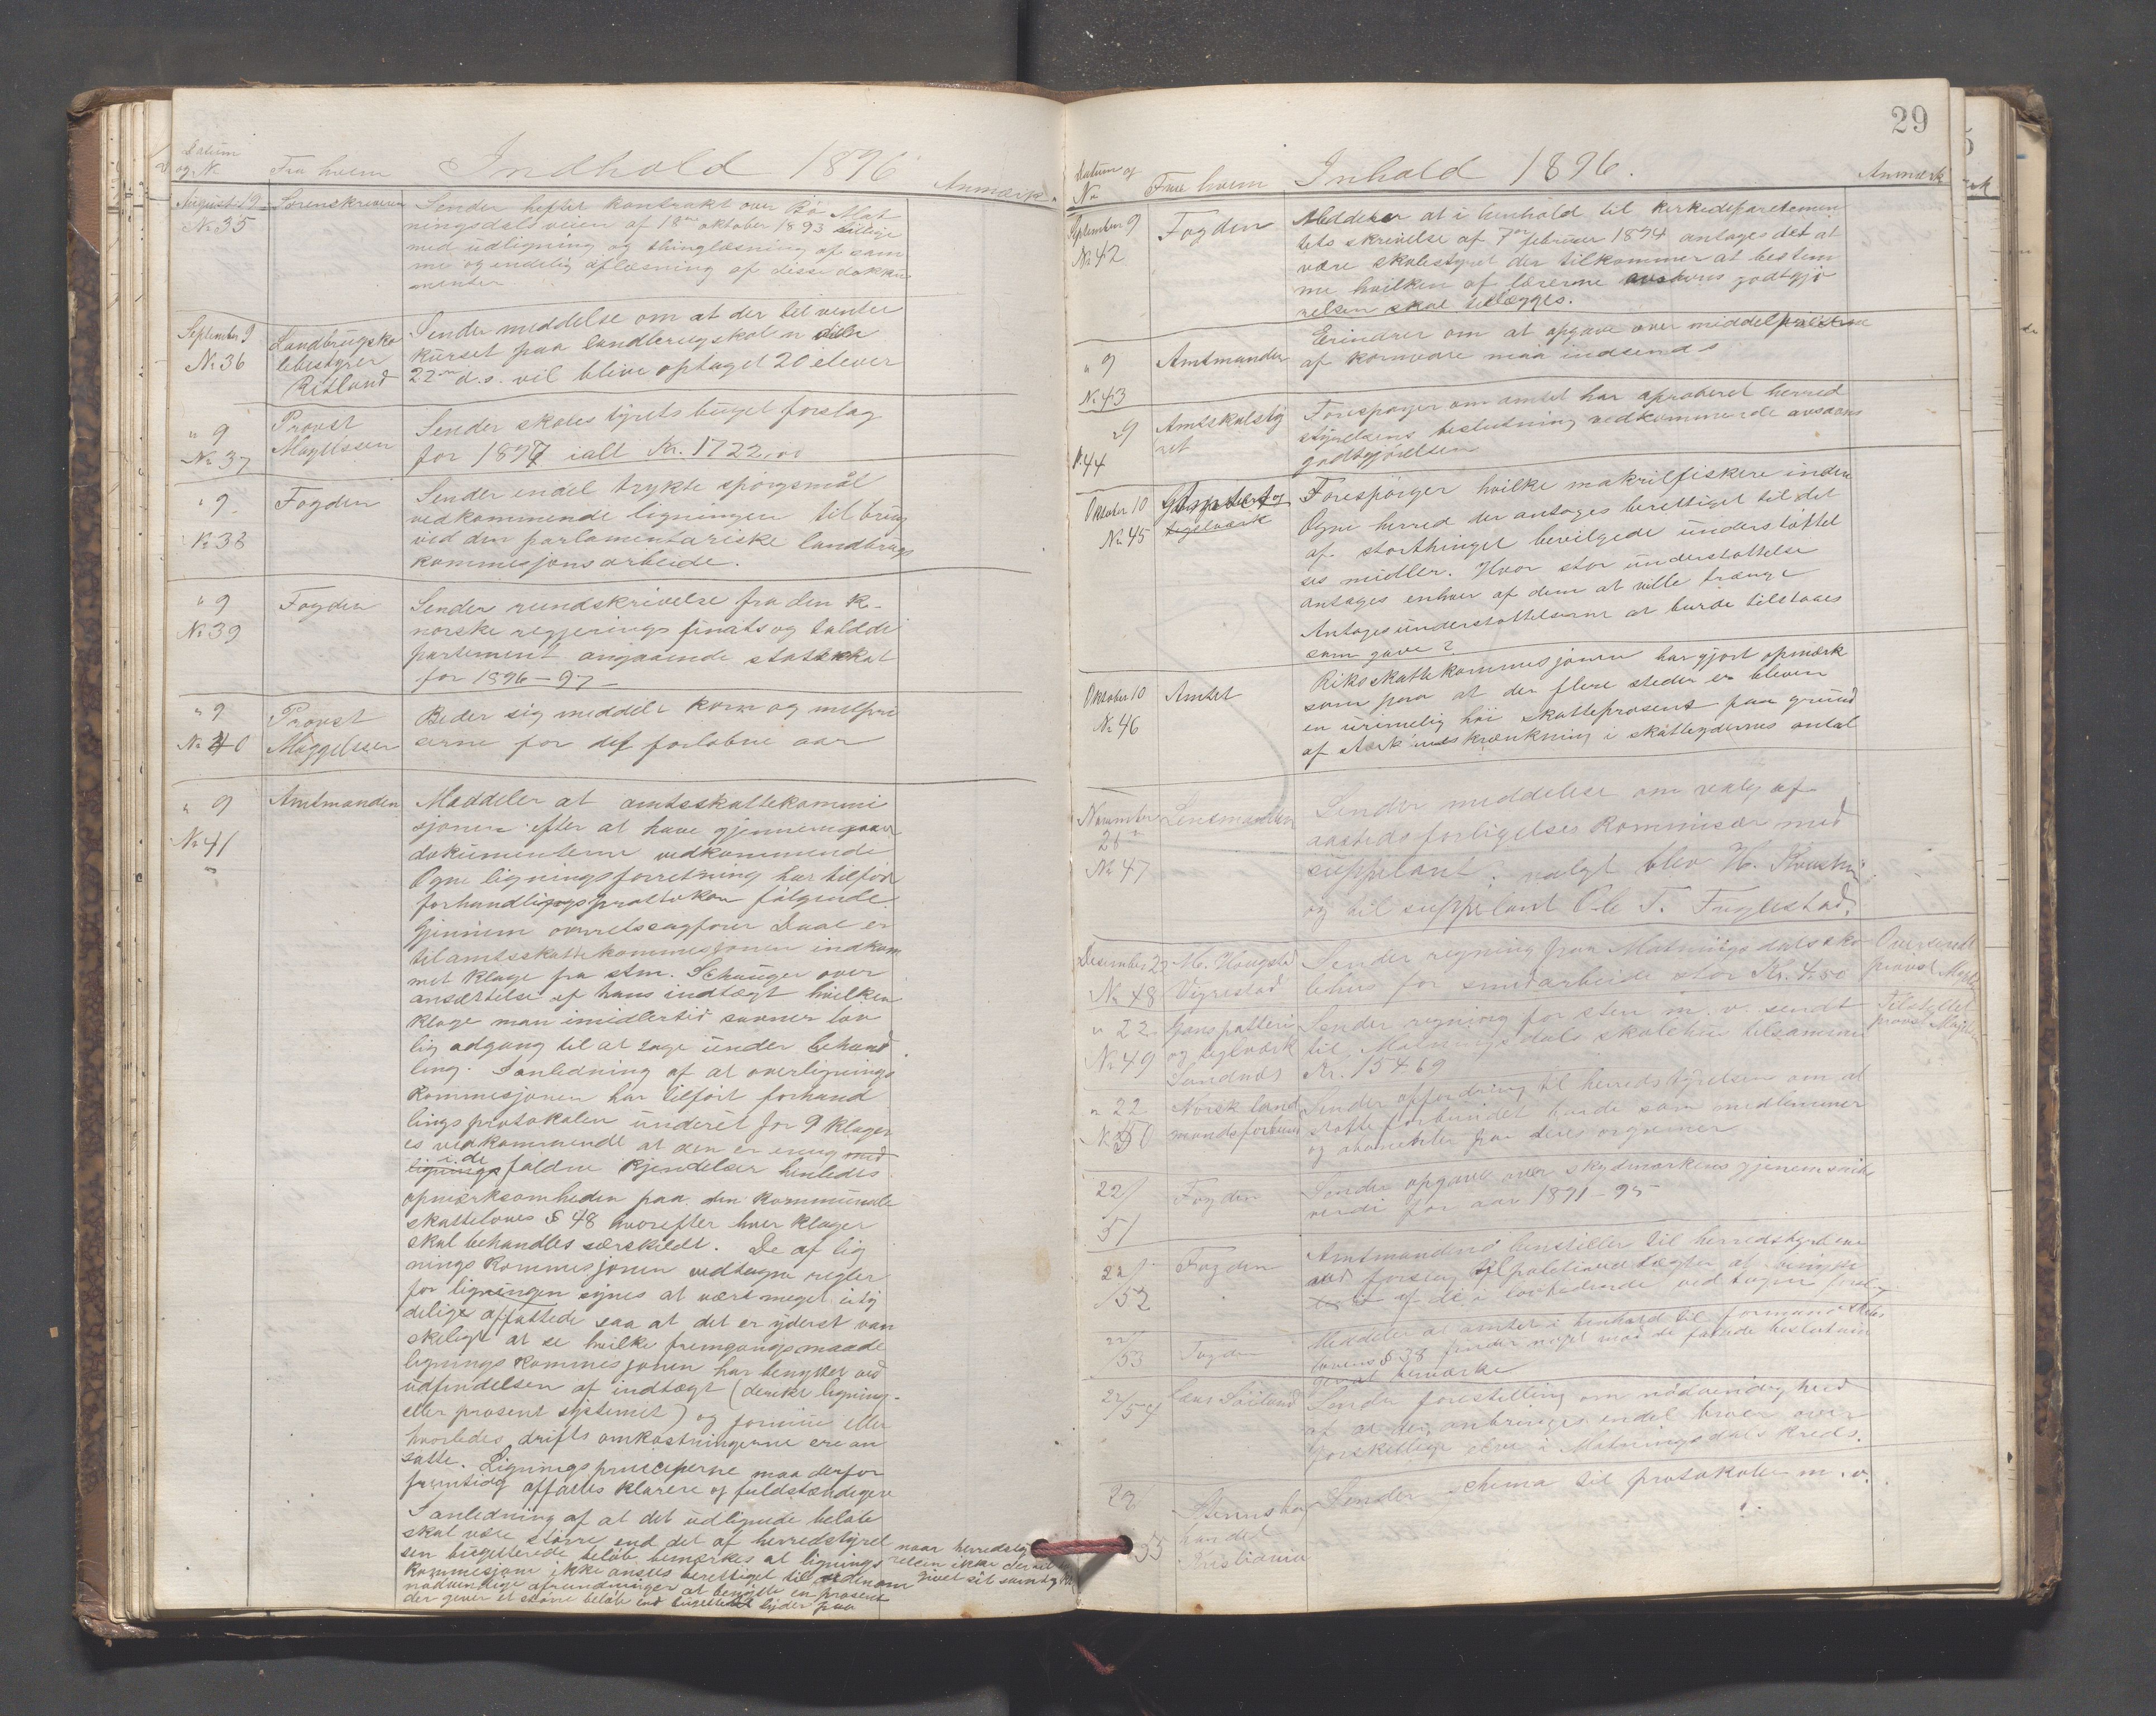 Datum
og N.
Fra hvem
Indhold 1896
Anmærk.
August 19
No 35
Sorenskriveren
Sender heftet kontrakt over Bø Mat
ningsdals veien af 18de oktober 1893 tillige
med udligning og thinglæsning af sam
me og endelig aflæsning af disse dokku
menter
September 9
No 36
Landbrugsko
lebestyrer
Retland
Sender meddelse om at der til vinter
kurset paa landbrugskolen
22 d.s. vil blive optaget 20 elever
" 9
No 37
Provst
Magelssen
Sender skolestyrets buget forslag
for 1897 ialt Kr. 1722,00
" 9
No 38
Fogden
Sender endel trykte spørgsmål
vedkommende ligningen til brug
ved den parlamentariske landbrugs
kommisjons arbeide.
" 9
No 39
Fogden
Sender rundskrivelse fra den K.
norske regjerings finats og toldde
partement angaaende statsskat
for 1896-97
" 9
No 40
Provst
Maggelssen
Beder sig meddelt korn og melpri
serne for det forløbne aar
" 9
No 41
Amtmanden
Meddeler at amtsskattekommi
sjonen efter at have gjennemgaaet
dokumenterne vedkommende
Ogne ligningsforretning har tilført
forhandlingsprottokon følgende.
Gjennem overretssagfører Daae er
til amtsskattekommisjonen indkom
met klage fra stm. Schanger over
ansættelse af hans indtægt hvilken
klage man imidlertid savner lov
lig adgang til at tage under behand
ling. I anledning af at overlignings
kommisjonen har tilført forhand
lingsprotokolen underet for 9 klager
es vedkommende at den er enig med
lignings i de faldne kjendelser henledes
opmærksomheden paa den kommunale
skattelovs § 48 hvorefter hver klager
skal behandles særskildt. De af lig
nings kommisjonen vedtagne regler
for ligningen synes at være meget uty
delige affattede saa at det er yderst van
skeligt at se hvilke fremgangsmaade
lignings kommisjonen har benyttet ved
udfindelsen af indtægt (derekte ligning-
eller prosent systemet) og formue eller
hvorledes drifts omkostningerne ere an
satte. Lignings principerne maa derfor
fremtidig affattes klarere og fuldstændigere
I anledning af at det udlignede beløb
skal være større end det af herredstyrel
sen bugetterede beløb bemærkes at lignings
kommisjone ikke ansees berettiget til udenom
nødvendige afrundninger at benytte en prosent
der giver et større beløb end bugettet lyder paa
naar herredsty
relsen ikke dertil har
givet sit samtykke
29
Datum og
No
Fra hvem
Inhold 1896.
Anmærk
September 9
No 42
Fogden
Meddeler at i henhold til kirkedepartemen
tets skrivelse af 7de februar 1894 antages det at
være skolestyret der tilkommer at bestem
me hvilken af lærerne avskens godtgjø
relsen skal tillægges.
" 9
No 43
Amtmanden
Erindrer om at opgave over middelpriserne
af kornvare maa indsendes
29
N. 44
Amtskolesty
ret
Forespørger om amtet har aproberet herred
styrelsens beslutning vedkommende avsavns
godtgjørelsen
Oktober 10
No 45
Gans potteri og
teglværk
Forespørger hvilke makrilfiskere inden
Ogne herred der antages berettiget til det
af storthinget bevilgede understøttel
ses midler. Hvor stor understøttelse
antages enhver af dem at ville trænge
Antages understøttelserne at burde tilstaaes
som gave?
Oktober 10
No 46
Amtet
Riksskattekommisjonen har gjort opmærk
som paa at der flere steder er bleven
en urimelig høi skatteprosent paa grund
af stærk indskrænkning i skatteydernes antal
November
26
No 47
Lensmanden
Sender meddelese om valg af
aasteds forligelses kommisær med
suppelant; valgt blev H. Kvaslei
og til suppelant Ole T. Fuglestad.
Desember 22
No 48
M. Haugstad
Vigrestad
Sender regning paa Matningsdals sko
lehus for smedarbeide stor Kr. 4,50
Oversendt
provst Magels
" 22
No 49
Gans potteri
og teglværk
Sandnæs
Sender regning for sten m. v. sendt
til Matningsdals skolehus tilsammen
Kr. 154 69
Tilstyllet
provst Magels
" 22
No 50
Norsk land
mandsforbund
Sender opfordring til herredstyrelsen om at
støtte forbundet baade som medlemmer
og abonenter paa deres organer
22/
51
Fogden
Sender opgave over skydmerkens gjenemsnits
verdi for aar 1891-95
22/
/52
Fogden
Amtmanden henstiller til herredstyrelsene
forslag til politivedtægter at
af de i lovhedende vedtagne forslag
22/
/53
Fogden
Meddeler at amtet i henhold til formandskabs
lovens § 38 finder noget mod de fattede beslutnin
ger at bemærke
22/
/54
Lars Søiland
Sender forestilling om nødvendighed
af at der anbringes endel broer over
forskellige elve i Matningsdals kreds.
22
55
Stenns bog
handel
Kristiania
Sender schema til protokoller m. v.